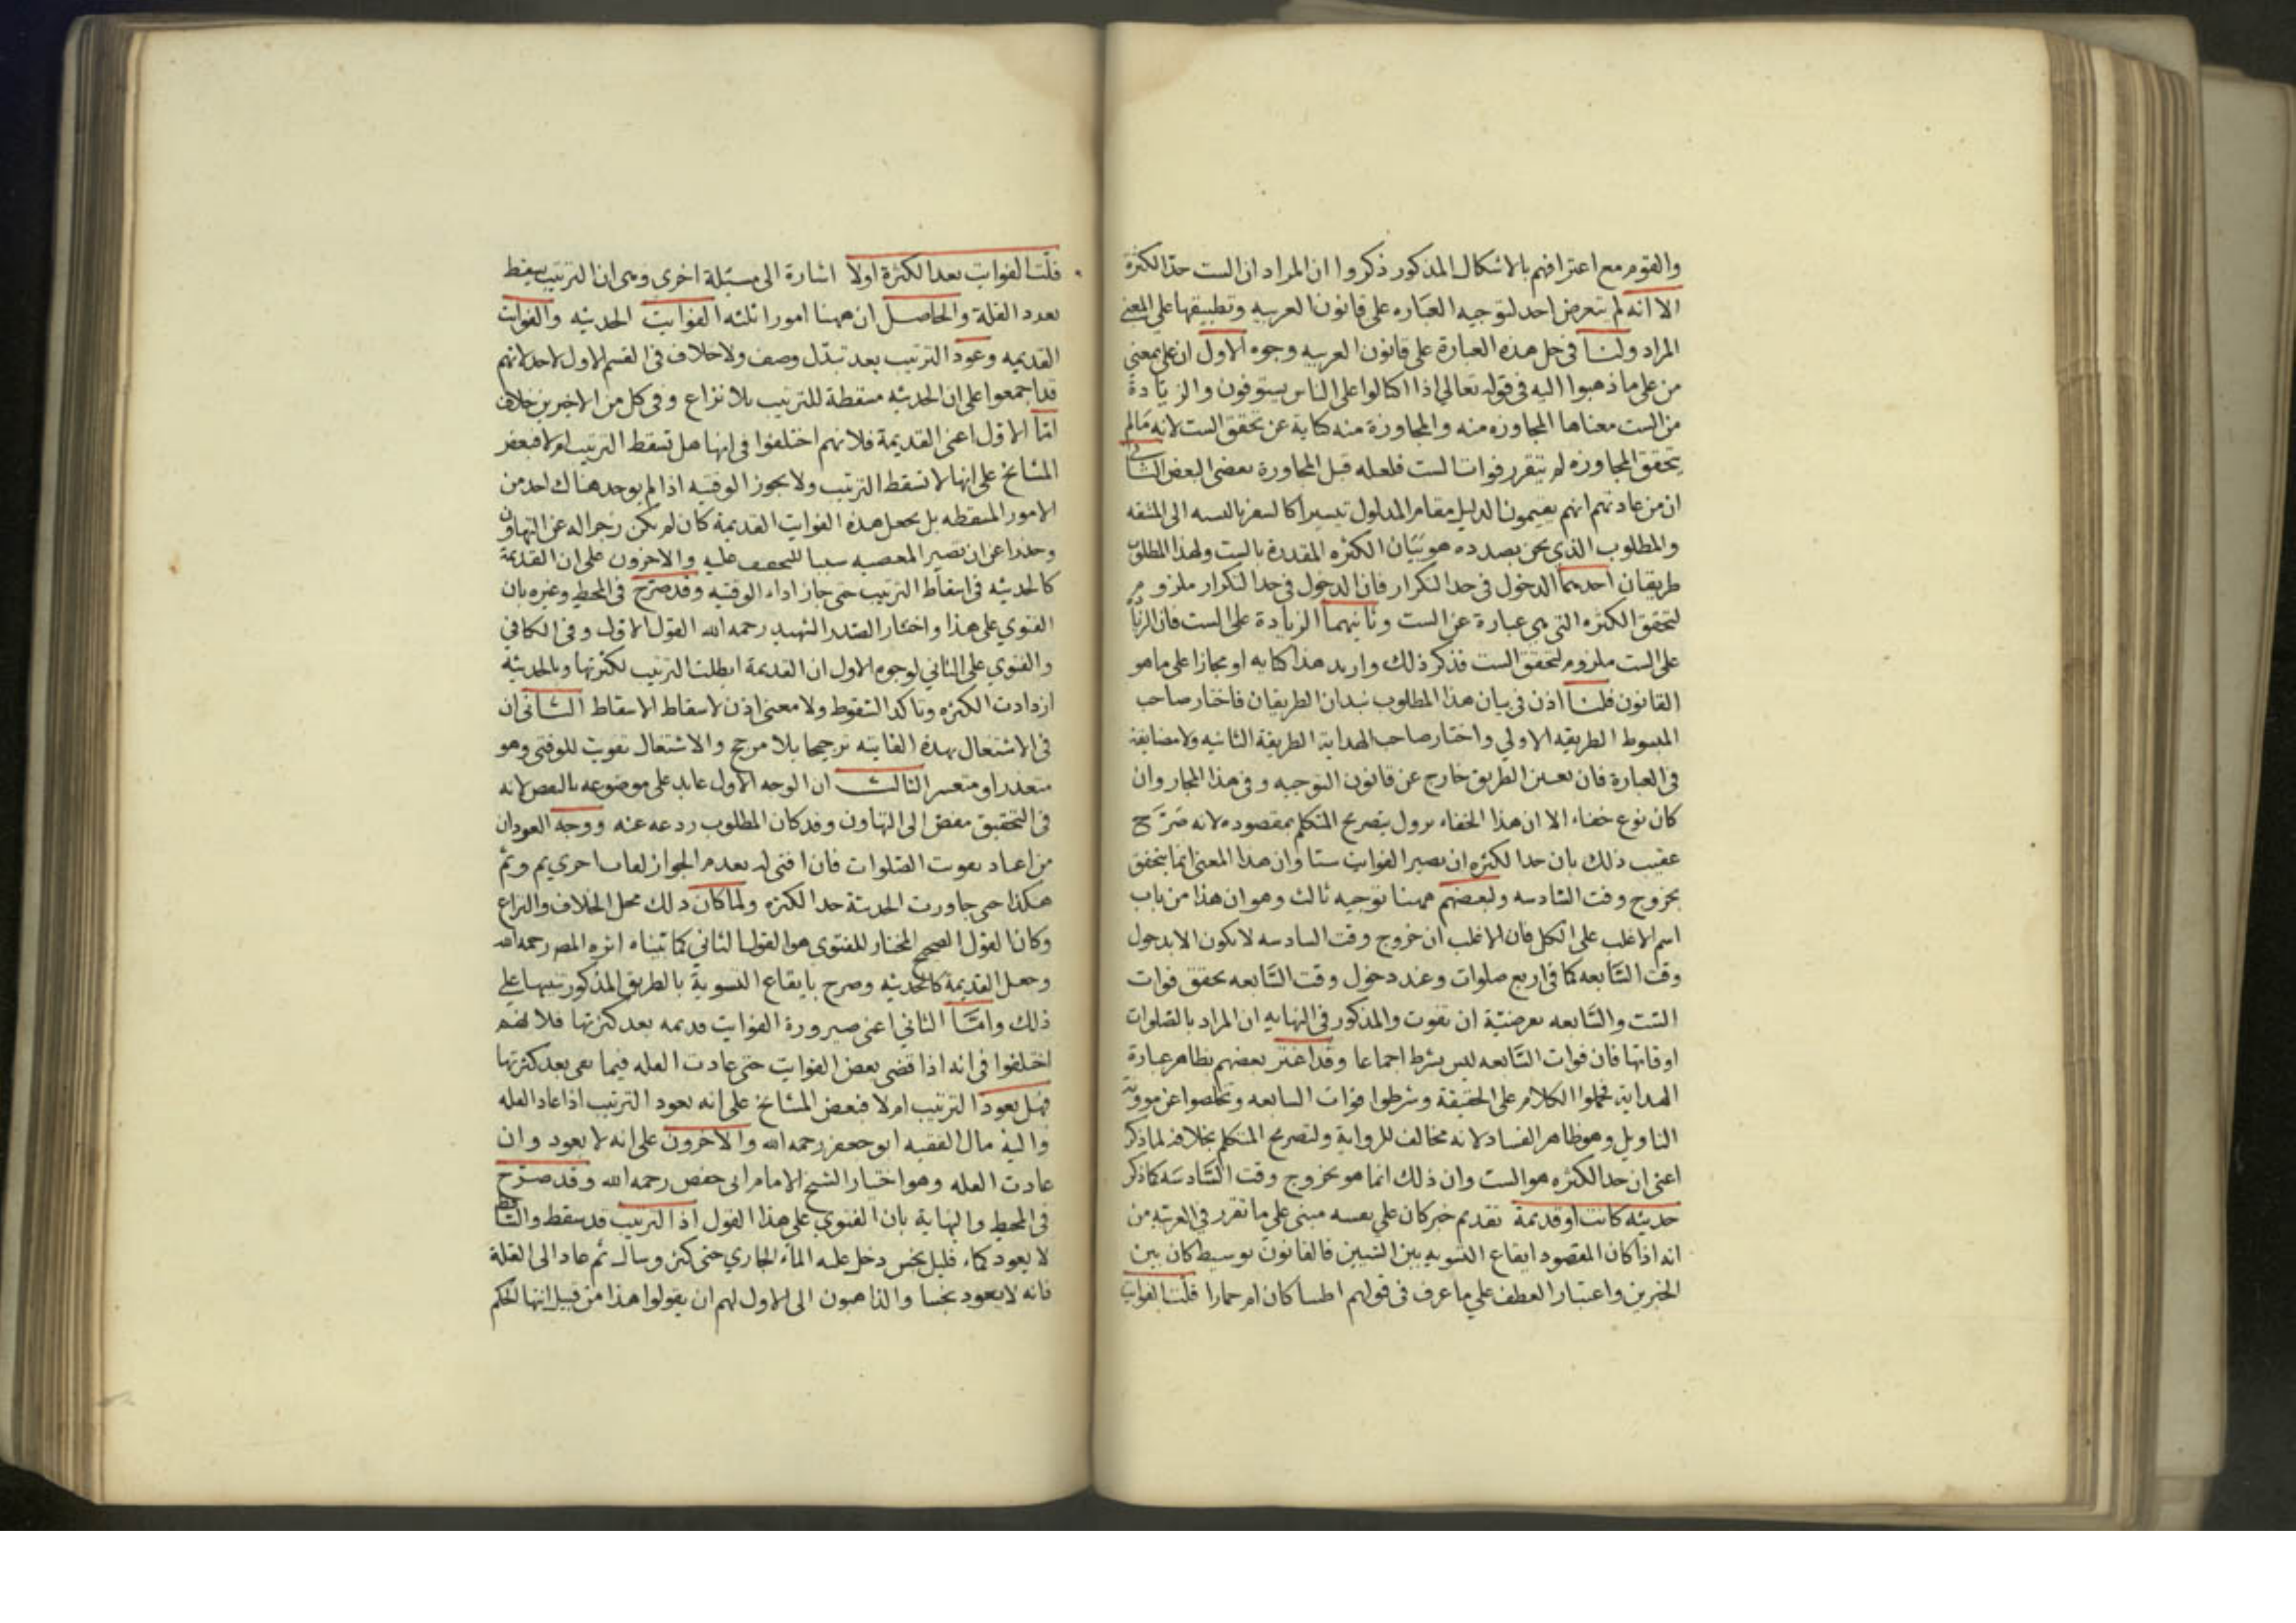 والقوم مع اعترافهم بالاشكال المذكور ذكروا ان المراد ان الست حد الكثرة
الا انه لم يتعرض احد لتوجيه العباره على قانون العربيه وتطبيقها على المعنى
المراد ولنا فى حل هذه العبارة على قانون العربيه وجوه الاول ان على بمعنى
من على ما ذهبوا اليه فى قوله تعالى اذا اكتالوا على الناس يستوفون والزيادة
من الست معناها المجاوزه منه والمجاوزة منه كناية عن تحقق الست لانه مالم
يتحقق المجاوزه لم يتقرر فوات الست فلعله قبل المجاورة بعضى البعض الثانى
ان من عادتهم انهم يقيمون الدليل مقام المدلول تيسيرا كالسفر بالنسبه الى المشقه
والمطلوب الذي نحن بصدده هو بيان الكثره المقدرة بالست ولهذا المطلوب
طريقان احديهما الدخول فى حد التكرار فان الدخول فى حد التكرار ملزوم
لتحقق الكثره التى هى عبارة عن الست وثانيهما الزيادة على الست فان الزيادة
على الست ملزوم لتحقق الست فذكر ذلك واريد هذا كنايه او مجازا على ما هو
القانون فلنا اذن فى بيان هذا المطلوب نبدان الطريقان فاختار صاحب
المبسوط الطريقه الاولي واختار صاحب الهداية الطريقة الثانيه ولا مضايقة
فى العبارة فان تعيين الطريق خارج عن قانون التوجيه وفى هذا المجاز وان
كان نوع خفاء الا ان هذا الخفاء يزول بتصريح المتكلم بمقصوده لانه صرح
عقيب ذلك بان حد الكثره ان يصير الفوايت ستا وان هذا المعنى انما يتحقق
بخروج وقت السادسه ولبعضهم ههنا توجيه ثالث وهو ان هذا من باب
اسم الاغلب على الكل فان الاغلب ان خروج وقت السادسه لا يكون الا بدخول
وقت السابعه كما فى اربع صلوات وعند دخول وقت السابعه تحقق فوات
الست والسابعه بعرضية ان تفوت والمذكور فى النهايه ان المراد بالصلوات
اوقاتها فان فوات السابعه ليس بشرط اجماعا وقد اغتر بعضهم بظاهر عبارة
الهداية فحملوا الكلام على الحقيقة وشرطوا فوات السابعه وتخلصوا عن موونة
التاويل وهو ظاهر الفساد لانه مخالف للرواية ولتصريح المتكلم بخلافه لما ذكر
اعنى ان حد الكثره هو الست وان ذلك انما هو بخروج وقت السادسه كما ذكر
حديثه كانت او قديمة تقديم خبر كان على نفسه مبنى على ما تقرر فى العربيه من
انه اذا كان المقصود ايقاع التسويه بين الشيئين فالقانون توسيط كان بين
الخبرين واعتبار العطف علي ما عرف فى قولهم اظبيا كان ام حمارا قلت الفوايت
قلت الفوايت بعد الكثرة اولا اشارة الى مسئلة اخرى وهى ان الترتيب يسقط
بعود القلة والحاصل ان ههنا امورا ثلثه الفوايت الحديثه والفوايت
القديمه وعود الترتيب بعد تبدل وصف ولا خلاف فى القسم الاول لاحد لانهم
قد اجمعوا على ان الحديثه مسقطة للترتيب بلا نزاع وفى كل من الاخيرين خلاف
اما الاول اعنى القديمة فلانهم اختلفوا فى انها هل تسقط الترتيب ام لا فبعض
المشايخ على انها لا تسقط الترتيب ولا يجوز الوقتيه اذا لم يوجد هناك احد من
الامور المسقطه بل يجعل هذه الفوايت القديمة كان لم يكن زجرا له عن التهاون
وحذرا عن ان تصير المعصيه سببا للتخفيف عليه والاخرون على ان القديمة
كالحديثه فى اسقاط الترتيب حتى جاز اداء الوقتيه وقد صرح فى المحيط وغيره بان
الفتوي على هذا واختار الصدر الشهيد رحمه الله القول الاول وفى الكافي
والفتوي على الثاني لوجوه الاول ان القديمة ابطلت الترتيب لكثرتها وبالحديثه
ازدادت الكثره وتاكد السقوط ولا معنى اذن لاسقاط الاسقاط الثانى ان
فى الاشتغال بهذه الفايته ترجيحا بلا مرجح والاشتغال تفويت للوقتى وهو
متعذر او متعسر الثالث ان الوجه الاول عايد على موضوعه بالنقض لانه
فى التحقيق مفض الى التهاون وقد كان المطلوب ردعه عنه ووجه العود ان
من اعتاد تفوت الصلوات فان افتى له بعدم الجواز لفات اخري ثم وثم
هكذا حتى جاورت الحديثة حد الكثره ولما كان ذلك محل الخلاف والنزاع
وكان القول الصحيح المختار للفتوى هو القول الثاني كما بيناه اثره المص رحمه الله
وجعل القديمة كالحديثه وصرح بايقاع التسوية بالطريق المذكور تنبيها على
ذلك واما الثاني اعنى صيرورة الفوايت قديمه بعد كثرتها فلانهم
اختلفوا فى انه اذا قضى بعض الفوايت حتى عادت القله فيما بقى بعد كثرتها
فهل يعود الترتيب ام لا فبعض المشايخ على انه يعود الترتيب اذا عاد القله
واليه مال الفقيه ابو جعفر رحمه الله والاخرون على انه لا يعود وان
عادت القله وهو اختيار الشيخ الامام ابى حفص رحمه الله وقد صرح
فى المحيط والنهاية بان الفتوي على هذا القول اذ الترتيب قد سقط والساقط
لا يعود كماء قليل نجس دخل عليه الماء الجاري حتى كثر وسال ثم عاد الى القلة
فانه لا يعود نجسا والذاهبون الى الاول لهم ان يقولوا هذا من قبيل انتها الحكم